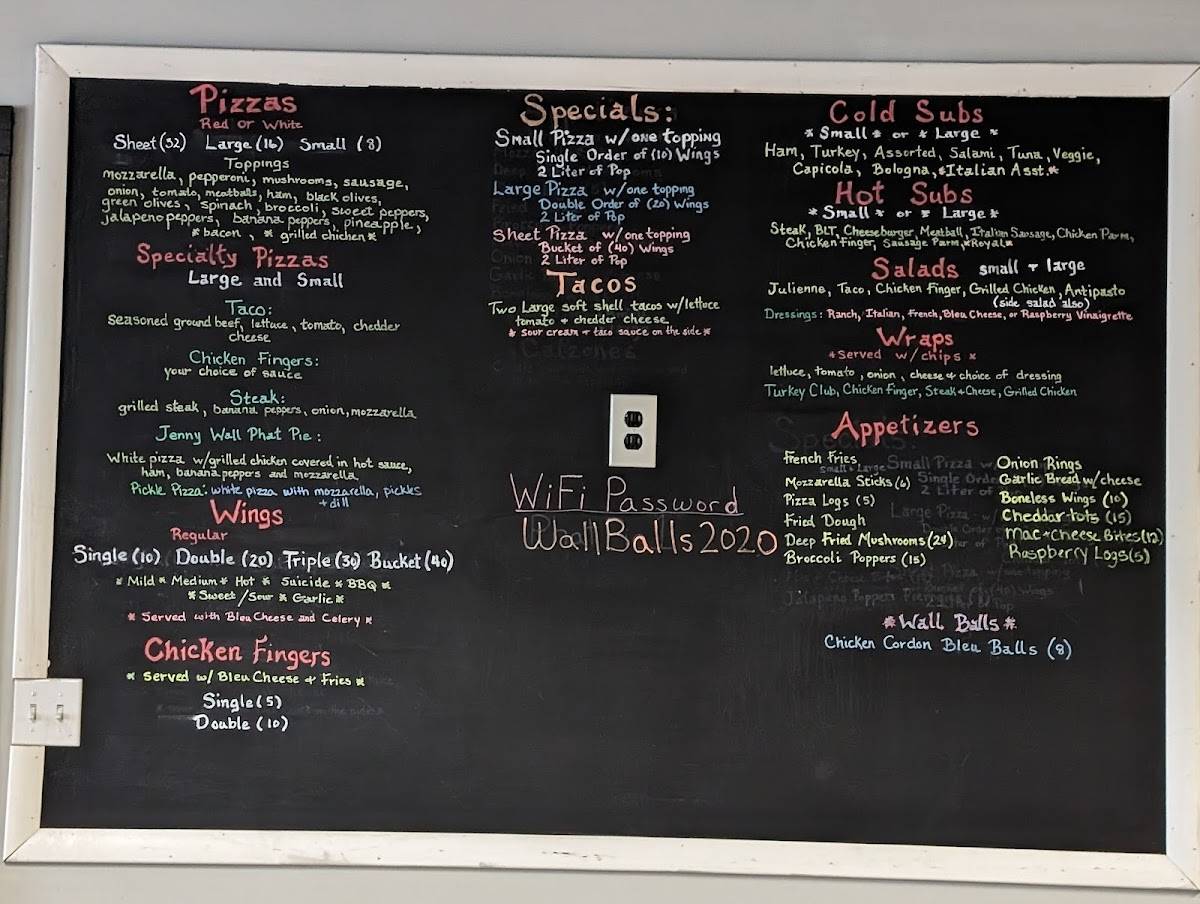 Pizzas
Red or White
Sheet (32) Large (16) Small (8)
Toppings
mozzarella, pepperoni, mushrooms, sausage,
onion, tomato, meatballs, ham, black olives,
green olives, spinach, broccoli, sweet peppers,
jalapeno peppers, banana peppers, pineapple,
* bacon, * grilled chicken *
Specialty Pizzas
Large and Small
Taco:
Seasoned ground beef, lettuce, tomato, chedder
cheese
Chicken Fingers:
your choice of sauce
Steak:
grilled steak, banana peppers, onion, mozzarella
Jenny Wall Phat Pie:
White pizza w/grilled chicken covered in hot sauce,
ham, banana peppers and mozzarella
Pickle Pizza: white pizza with mozzarella, pickles
+ dill
Wings
Regular
Single (10) Double (20) Triple (30) Bucket (40)
* Mild * Medium * Hot * Suicide * BBQ *
* Sweet/Sour * Garlic *
* Served with Bleu Cheese and Celery *
Chicken Fingers
* Served w/ Bleu Cheese + Fries *
Single (5)
Double (10)
Specials:
Small Pizza w/one topping
Single Order of (10) Wings
2 Liter of Pop
Large Pizza w/one topping
Double Order of (20) Wings
2 Liter of Pop
Sheet Pizza w/one topping
Bucket of (40) Wings
2 Liter of Pop
Tacos
Two Large soft shell tacos w/lettuce
tomato + chedder cheese
* Sour cream + taco sauce on the side *
WiFi Password
WallBalls2020
Cold Subs
* Small * or * Large *
Ham, Turkey, Assorted, Salami, Tuna, Veggie,
Capicola, Bologna, *Italian Asst.*
Hot Subs
* Small * or * Large *
Steak, BLT, Cheeseburger, Meatball, Italian Sausage, Chicken Parm,
Chicken Finger, Sausage Parm, *Royal*
Salads small + large
Julienne, Taco, Chicken Finger, Grilled Chicken, Antipasto
(side salad also)
Dressings: Ranch, Italian, French, Bleu Cheese, or Raspberry Vinaigrette
Wraps
*Served w/chips *
lettuce, tomato, onion, cheese + choice of dressing
Turkey Club, Chicken Finger, Steak + Cheese, Grilled Chicken
Appetizers
French Fries
small + Large
Mozzarella Sticks (6)
Pizza Logs (5)
Fried Dough
Deep Fried Mushrooms (24)
Broccoli Poppers (15)
Onion Rings
Garlic Bread w/cheese
Boneless Wings (10)
Cheddar tots (15)
Mac + Cheese Bites (12)
Raspberry Logs (5)
* Wall Balls *
Chicken Cordon Bleu Balls (8)